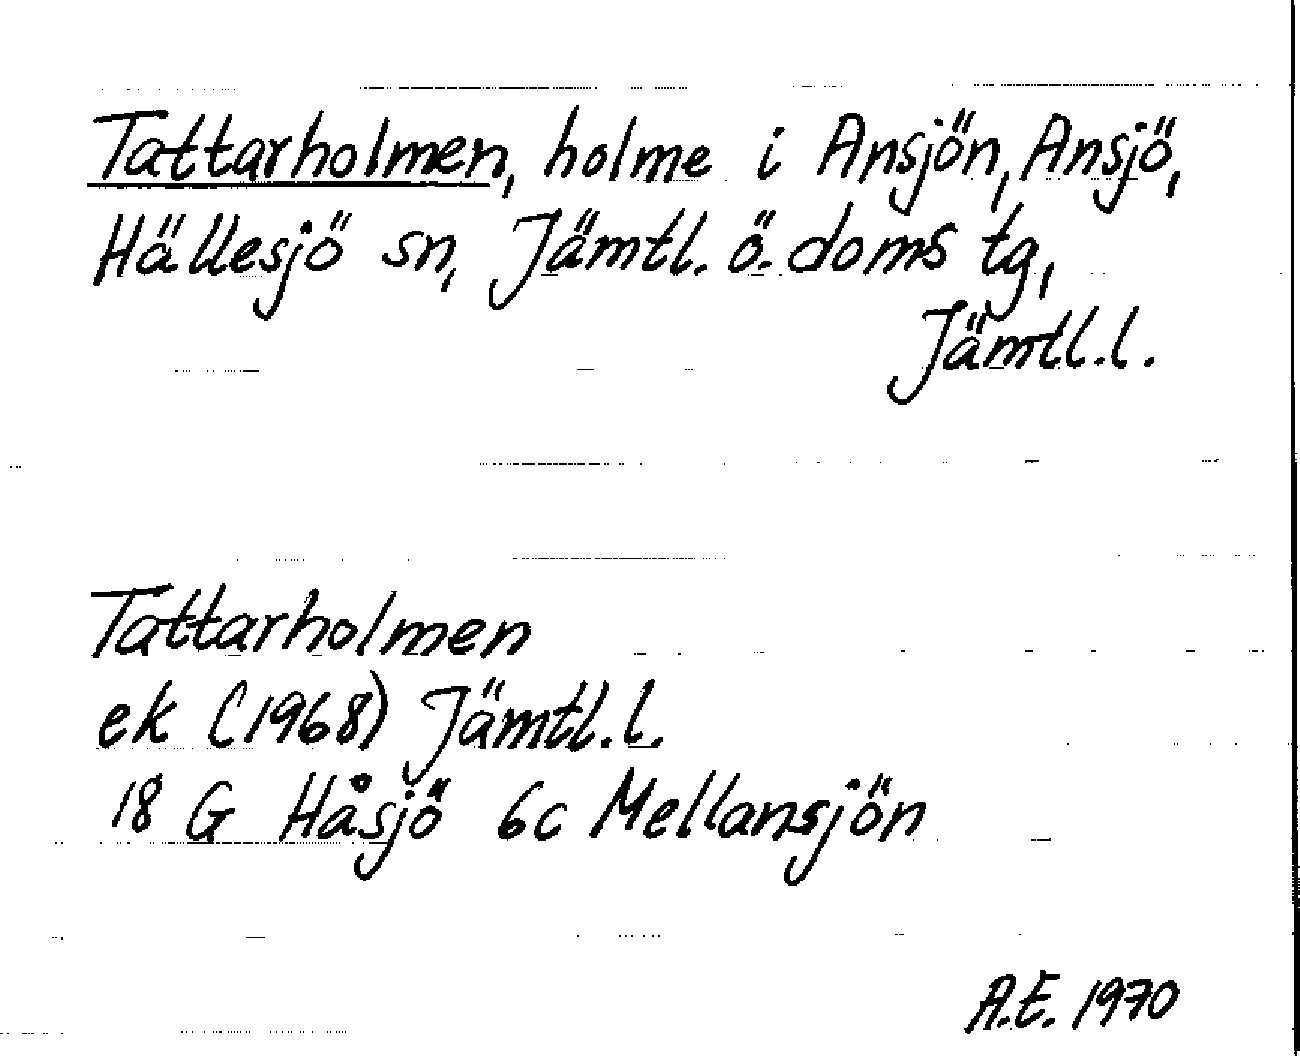 Tattarholmen, holme i Ansjön, Ansjö,
Hällesjö sn, Jämtl. ö. doms tg,
Jämtl.l.
Tattarholmen
ek (1968) Jämtl.l.
18 G Håsjö 6c Mellansjön
A.E. 1970